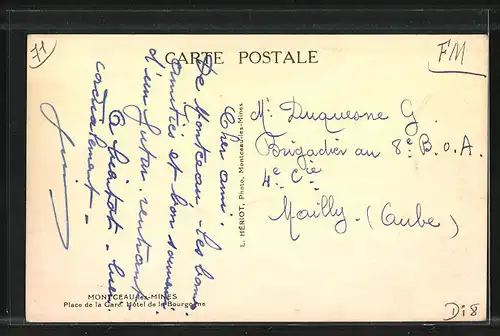 71
CARTE POSTALE
FM
Cher ami.
De Montceau-les bonnes
amitiés et bon souvenir
d'un futur rentrant
A bientôt - bien
cordialement -
L. HÉRIOT, Photo, Montceau-les-Mines
Mr Duquesne G.
Brigadier au 8e B.O.A.
4e Cie
Mailly - (Aube)
MONTCEAU-les-MINES
Place de la Gare. Hôtel de la Bourgogne
Di8